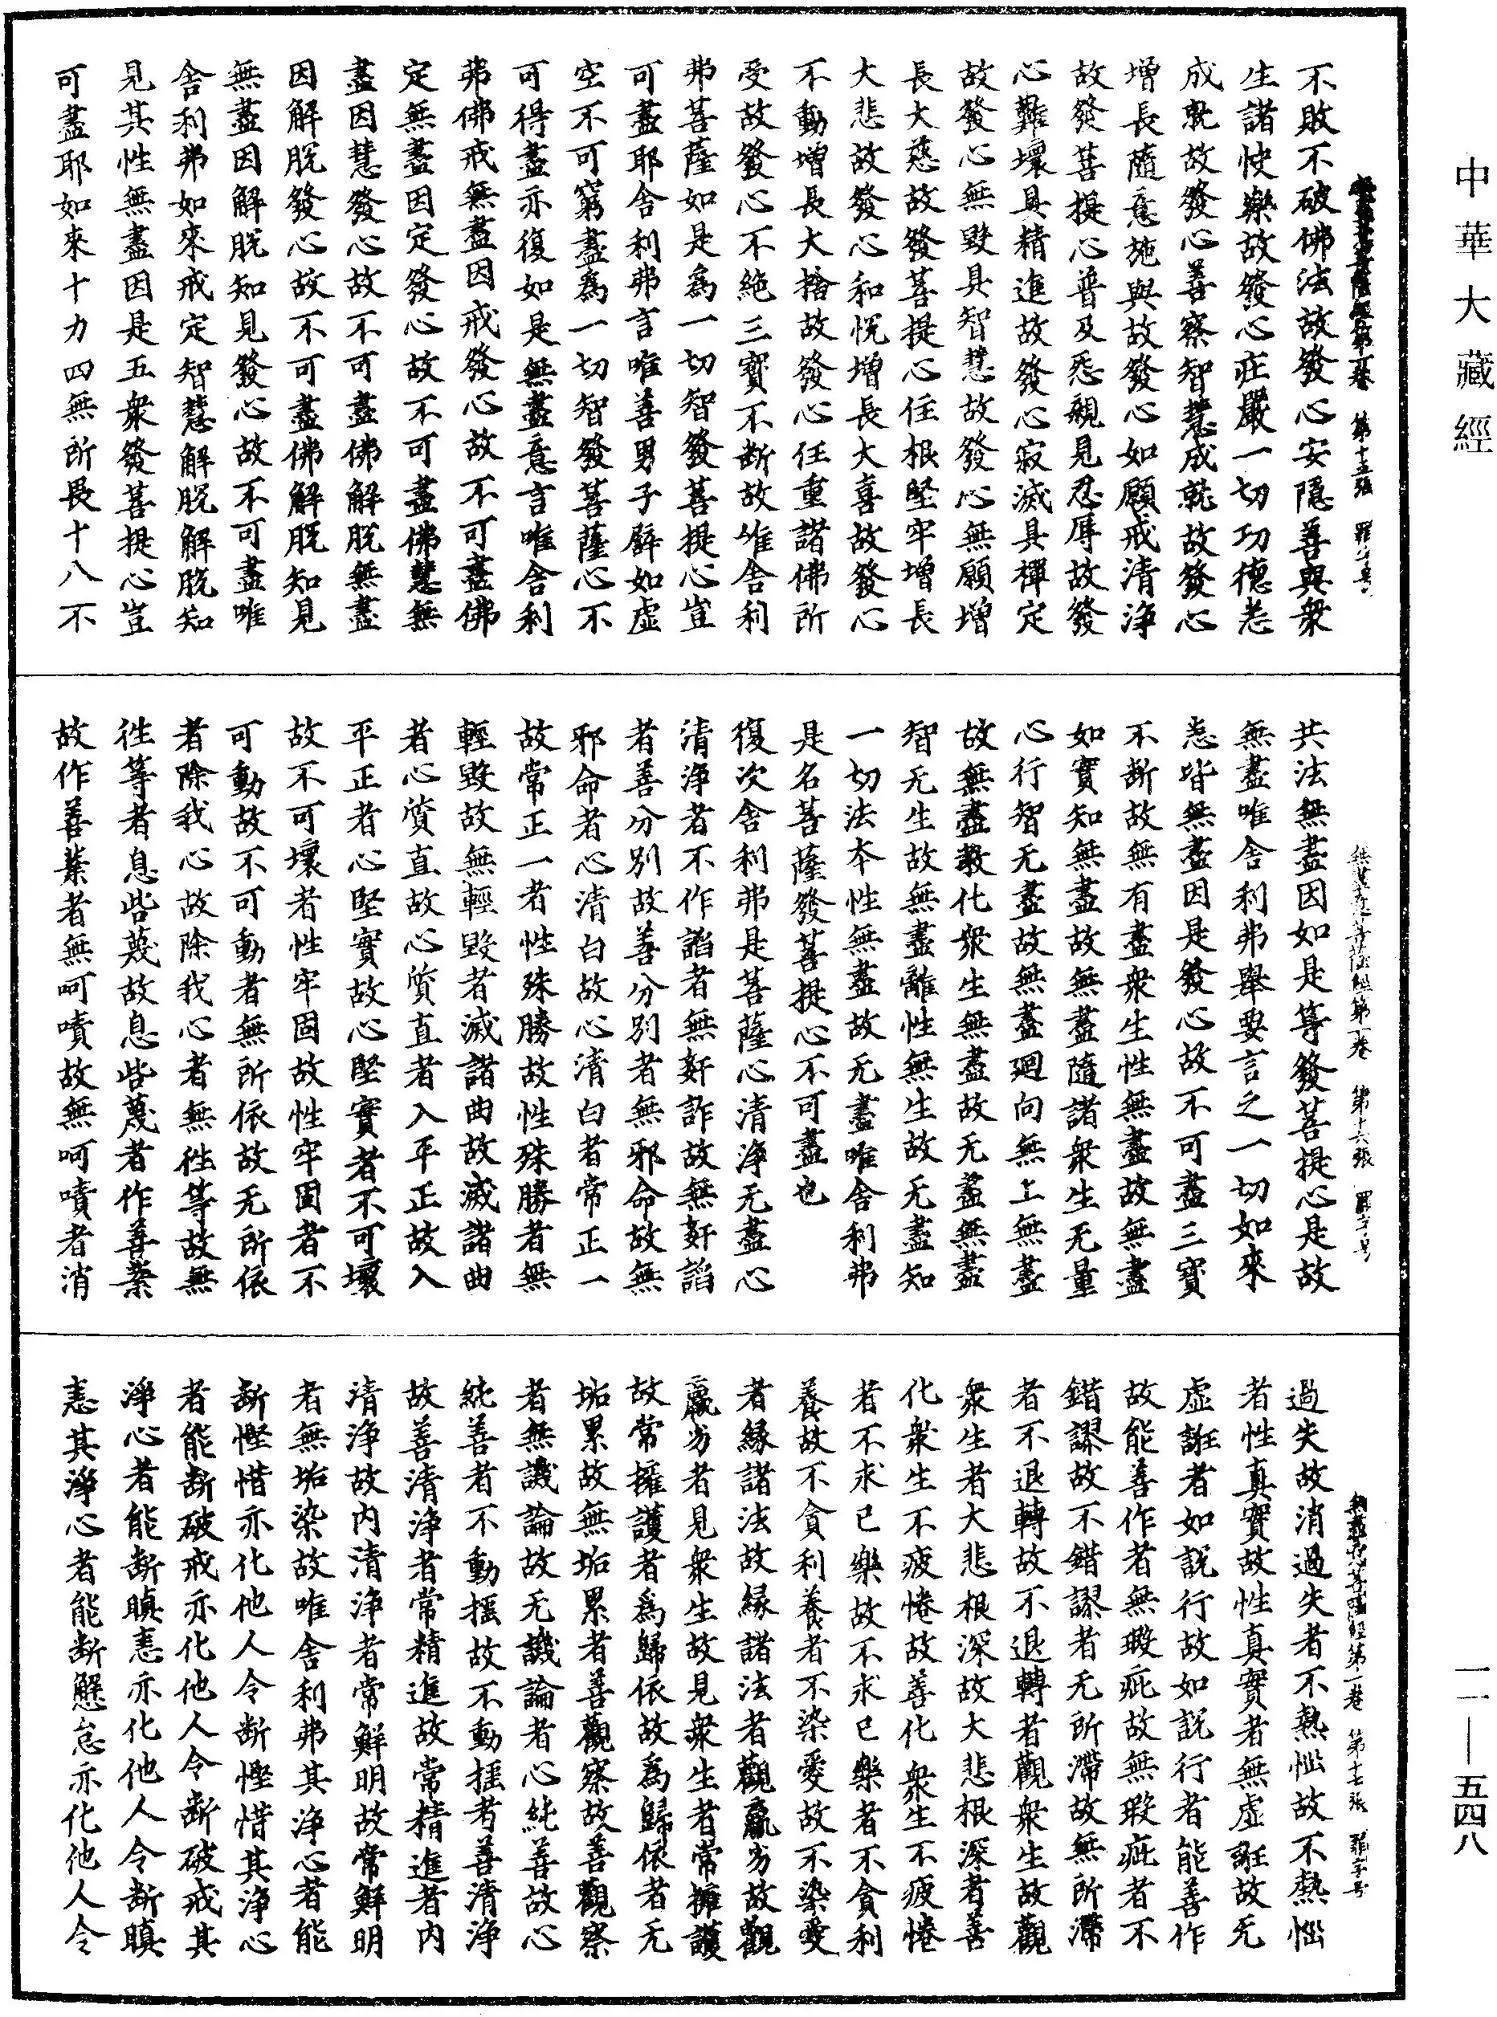 中華大藏經
一一—五四八
不敗不破佛法故發心安隱善與衆
生諸快樂故發心莊嚴一切功德悉
成就故發心善察智慧成就故發心
增長隨意施與故發心如願戒清淨
故發菩提心普及悉親見忍辱故發
心難壞具精進故發心寂滅具禪定
故發心無毀具智慧故發心無願增
長大慈故發菩提心住根堅牢增長
大悲故發心和悅增長大喜故發心
不動增長大捨故發心任重諸佛所
受故發心不絶三寶不斷故唯舍利
弗菩薩如是爲一切智發菩提心豈
可盡耶舍利弗言唯善男子辟如虛
空不可窮盡爲一切智發菩薩心不
可得盡亦復如是無盡意言唯舍利
弗佛戒無盡因戒發心故不可盡佛
定無盡因定發心故不可盡佛慧無
盡因慧發心故不可盡佛解脫無盡
因解脫發心故不可盡佛解脫知見
無盡因解脫知見發心故不可盡唯
舍利弗如來戒定智慧解脫解脫知
見其性無盡因是五衆發菩提心豈
可盡耶如來十力四無所畏十八不
第十五張
共法無盡因如是等發菩提心是故
無盡唯舍利弗舉要言之一切如來
悉皆無盡因是發心故不可盡三寶
不斷故無有盡衆生性無盡故無盡
如實知無盡故無盡隨諸衆生无量
心行智无盡故無盡迴向無上無盡
故無盡教化衆生無盡故无盡無盡
智无生故無盡離性無生故无盡知
一切法本性無盡故无盡唯舍利弗
是名菩薩發菩提心不可盡也
復次舍利弗是菩薩心清淨无盡心
清淨者不作諂者無姧詐故無姧諂
者善分別故善分別者無邪命故無
邪命者心清白故心清白者常正一
故常正一者性殊勝故性殊勝者無
輕毀故無輕毀者滅諸曲故滅諸曲
者心質直故心質直者入平正故入
平正者心堅實故心堅實者不可壞
故不可壞者性牢固故性牢固者不
可動故不可動者無所依故无所依
者除我心故除我心者無徃等故無
徃等者息呰蔑故息呰蔑者作善業
故作善業者無呵嘖故無呵嘖者消
第十六張
過失故消過失者不熱惱故不熱惱
者性真實故性真實者無虛誑故无
虛誑者如說行故如說行者能善作
故能善作者無瑕疵故無瑕疵者不
錯謬故不錯謬者无所滯故無所滯
者不退轉故不退轉者觀衆生故觀
衆生者大悲根深故大悲根深者善
化衆生不疲惓故善化衆生不疲惓
者不求已樂故不求已樂者不貪利
養故不貪利養者不染愛故不染愛
者緣諸法故緣諸法者觀羸劣故觀
羸劣者見衆生故見衆生者常擁護
故常擁護者爲歸依故爲歸依者无
垢累故無垢累者善觀察故善觀察
者無譏論故无譏論者心純善故心
純善者不動搖故不動搖者善清淨
故善清淨者常精進故常精進者內
清淨故內清淨者常鮮明故常鮮明
者無垢染故唯舍利弗其淨心者能
斷慳惜亦化他人令斷慳惜其淨心
者能斷破戒亦化他人令斷破戒其
淨心者能斷瞋恚亦化他人令斷瞋
恚其淨心者能斷懈怠亦化他人令
第十七張